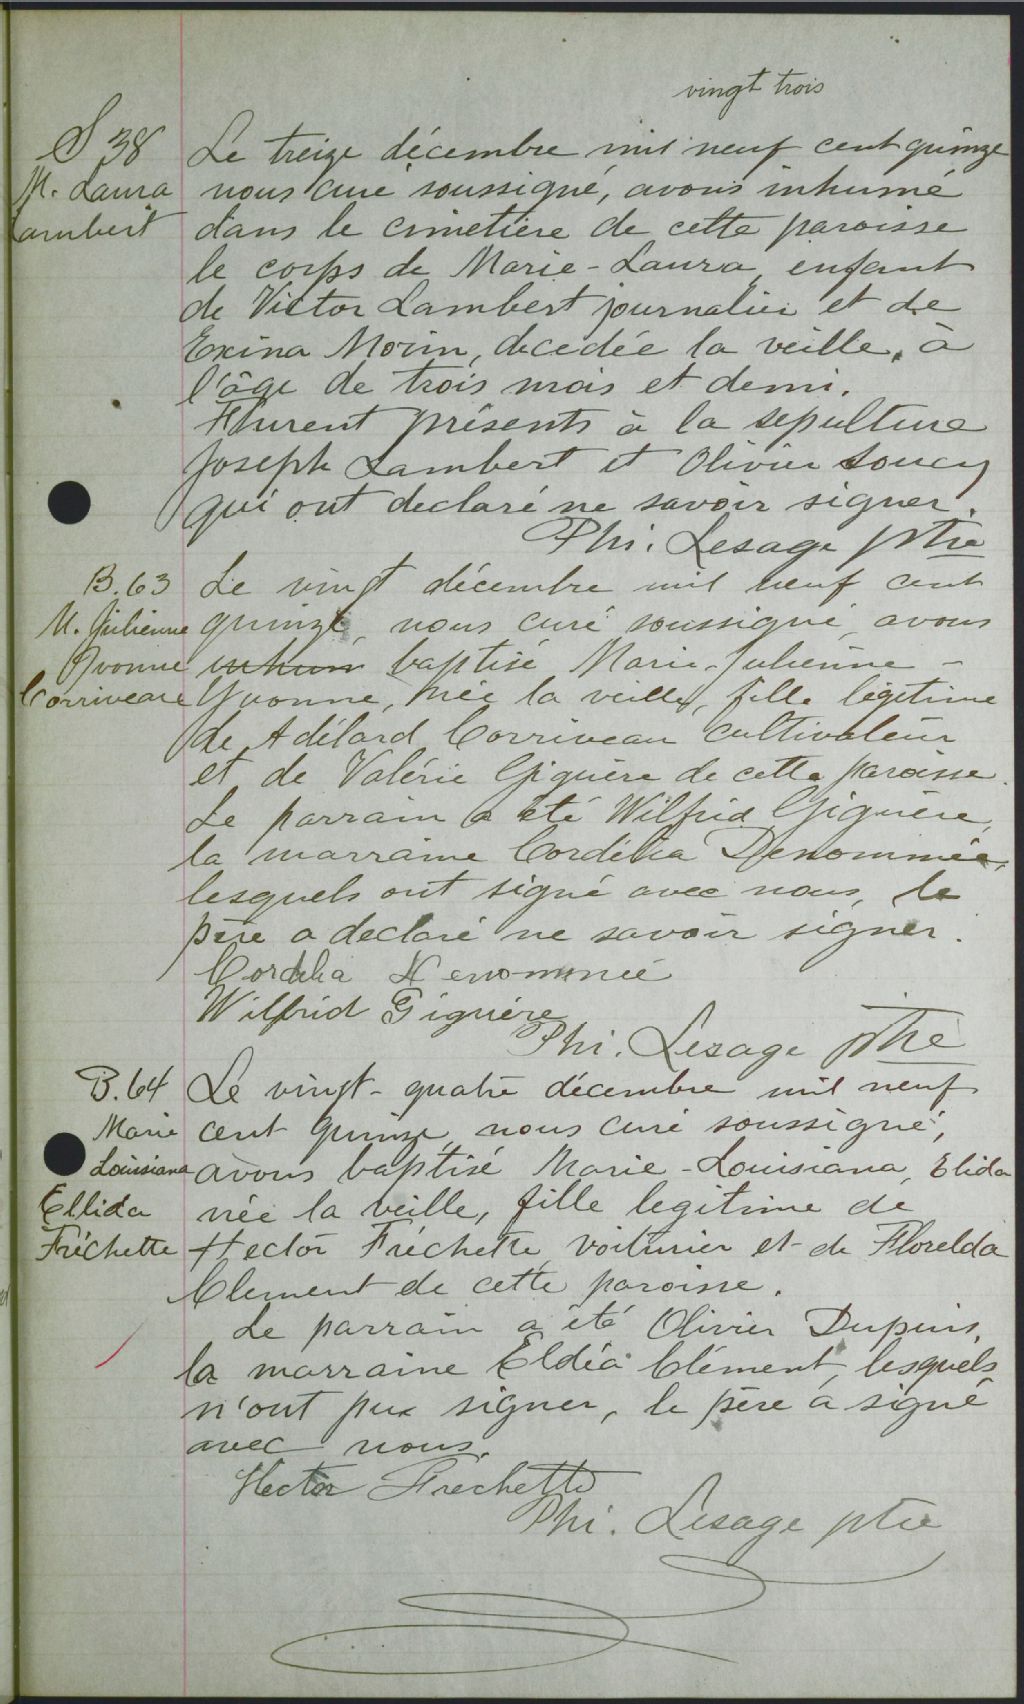 vingt trois
S 38
M. Laura
Lambert
Le treize décembre mil neuf cent quinze
nous curé soussigné, avons inhumé
dans le cimetière de cette paroisse
le corps de Marie-Laura, enfant
de Victor Lambert journalier et de
Exina Morin, decedée la veille, à
l'âge de trois mois et demi.
Furent présents à la sepulture
Joseph Lambert et Olivier Soucy
qui ont declaré ne savoir signer.
Phi. Lesage ptre
B. 63
M. Julienne
Yvonne
Corriveau
Le vingt décembre mil neuf cent
quinze, nous curé soussigné, avons
inhumé baptisé Marie-Julienne -
Yvonne, née la veille, fille légitime
de Adélard Corriveau cultivateur
et de Valérie Giguère de cette paroisse.
Le parrain a été Wilfrid Giguère,
la marraine Cordélia Denommée,
lesquels ont signé avec nous, le
père a declaré ne savoir signer.
Cordelia Denommée
Wilfrid Giguère
Phi. Lesage ptre
B. 64
Marie
Louisiana
Ellida
Fréchette
Le vingt-quatre décembre mil neuf
cent quinze, nous curé soussigné,
avons baptisé Marie-Louisiana, Elida
née la veille, fille legitime de
Hector Fréchette, voiturier et de Florelda
Clement de cette paroisse.
Le parrain a été Olivier Dupuis,
la marraine Eldéa Clément, lesquels
n'ont pu signer, le père a signé
avec nous.
Hector Frechette
Phi. Lesage ptre